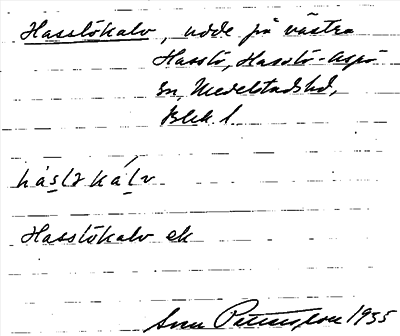 Hasslökalv, udde på västra
Hasslö, Hasslö-Aspö
sn, Medelstads hd,
Blek. l.
Hasslökalv ek
Sven Petersson 1935